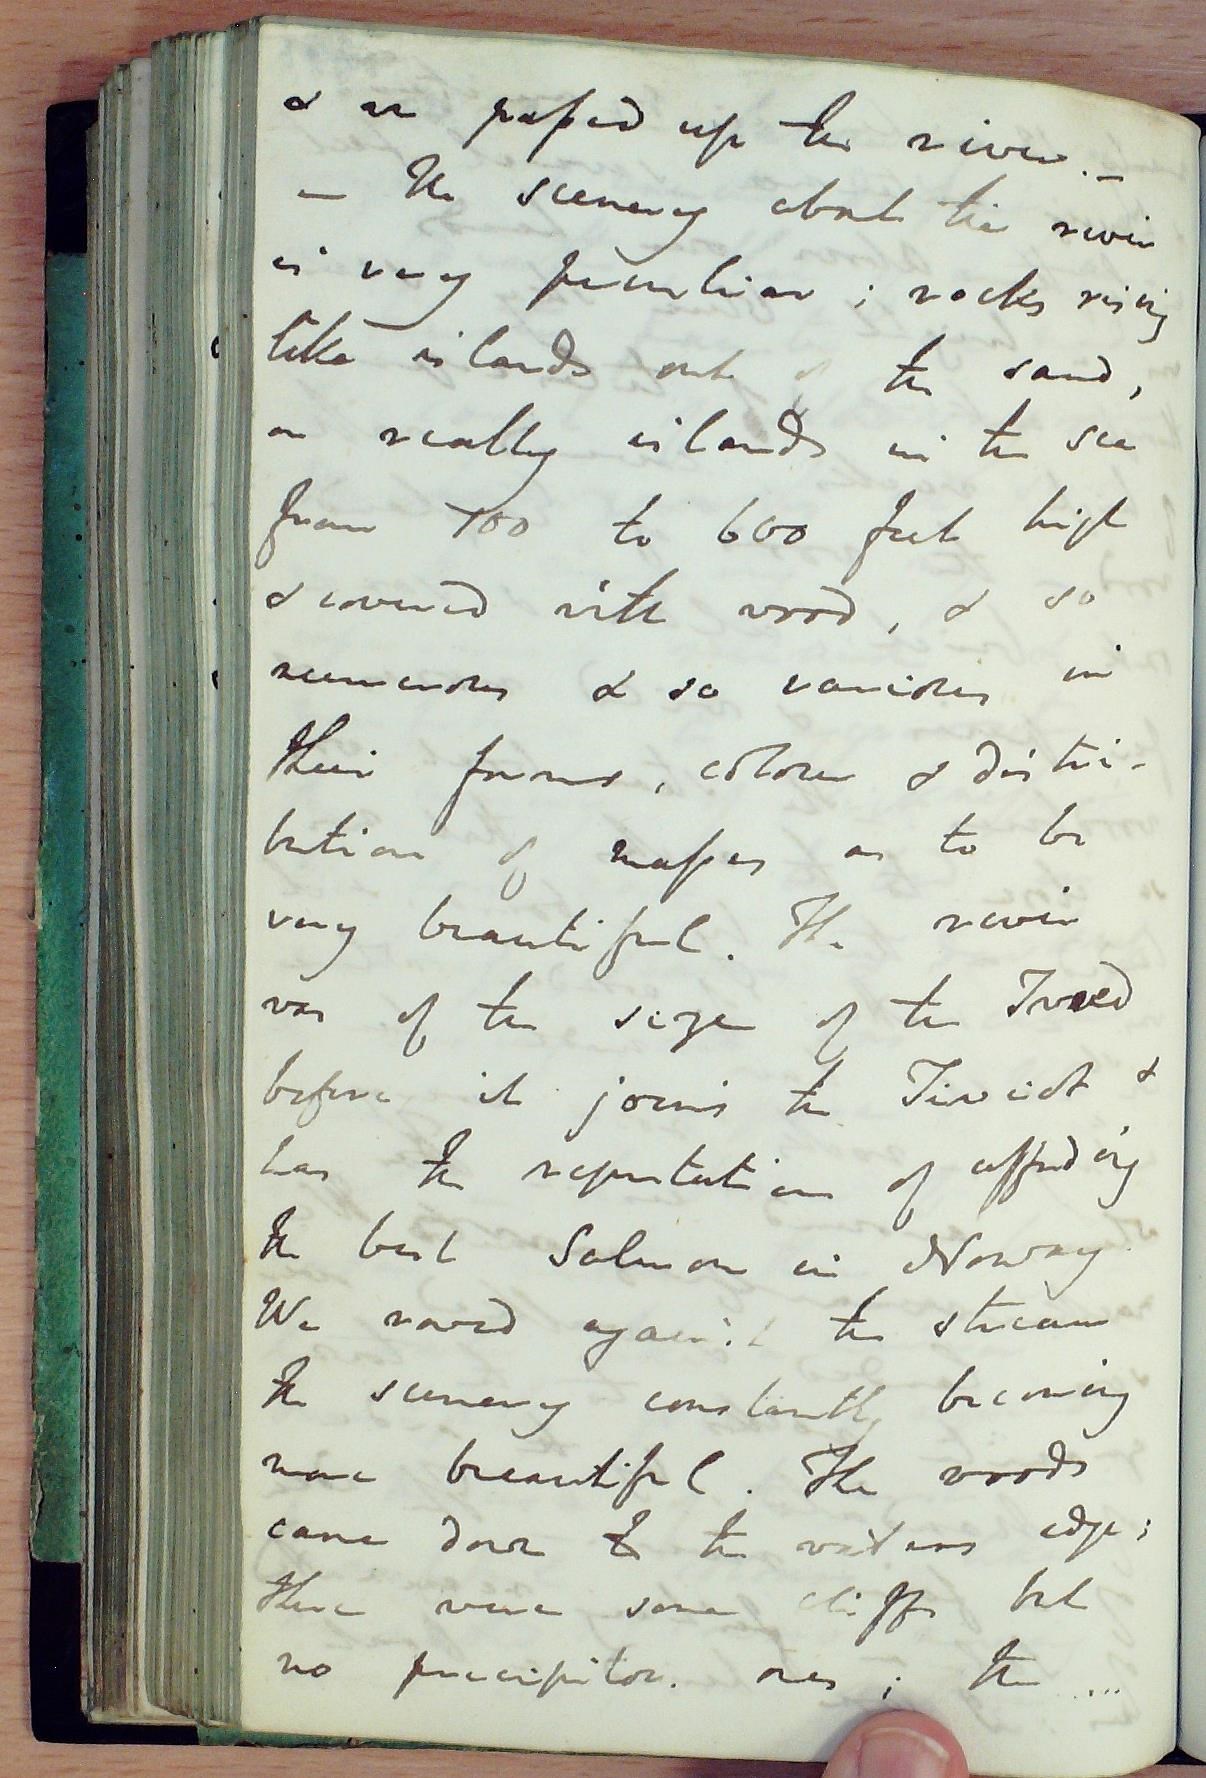 & we passed up the river. –
– The scenery about the river
is very peculiar; rocks rising
like islands out of the sand,
or really islands in the sea
from 100 to 600 feet high
& covered with wood, & so
numerous & so various in
their forms, colour & distri-
bution of masses as to be
very beautiful. The river
was of the size of the Tweed
before it joins the Tiviot &
has the reputation of affording
the best Salmon in Norway
We rowed against the stream
the scenery constantly becoming
more beautiful. The woods
came down to the waters edge;
there were some cliffs but
no precipitou. ones; the ...